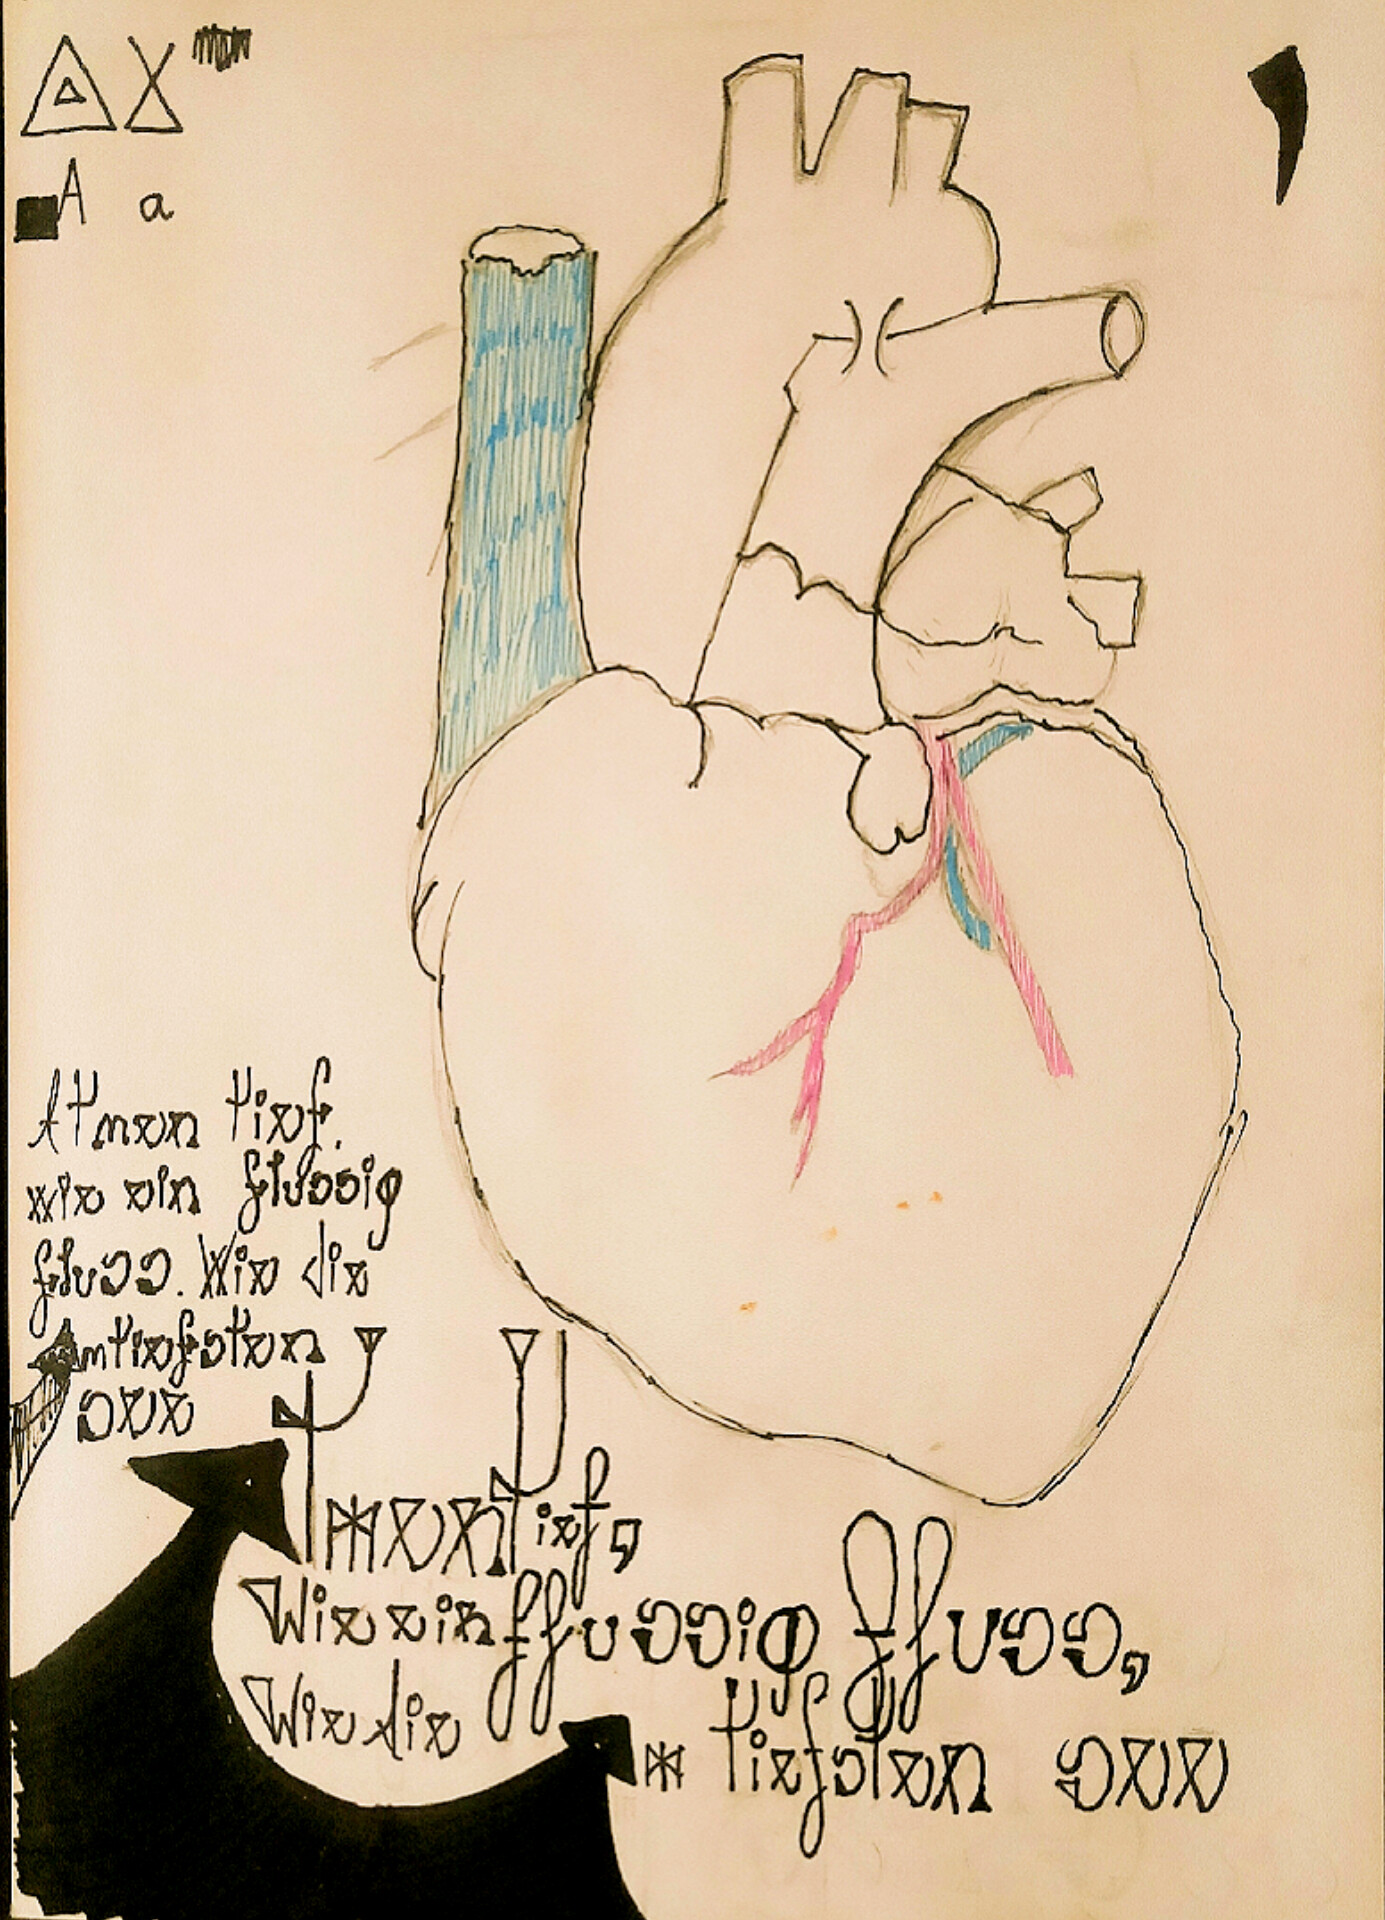 A a
Atmen tief.
wie ein flussig
fluss. Wie die
Am tiefsten
see
Atmen Tief,
Wie ein flussig fluss,
Wie die
Am tiefsten see